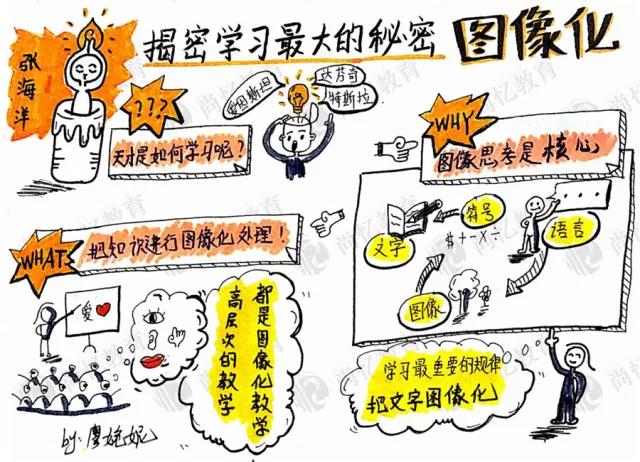 张海洋
揭密学习最大的秘密
图像化
???
天才是如何学习呢?
爱因斯坦
达芬奇
特斯拉
WHY
图像思考是核心
文字
符号
$+-×÷
语言
图像
学习最重要的规律
把文字图像化
WHAT
把知识进行图像化处理!
爱
都是图像化教学
高层次的教学
by:
尚忆教育